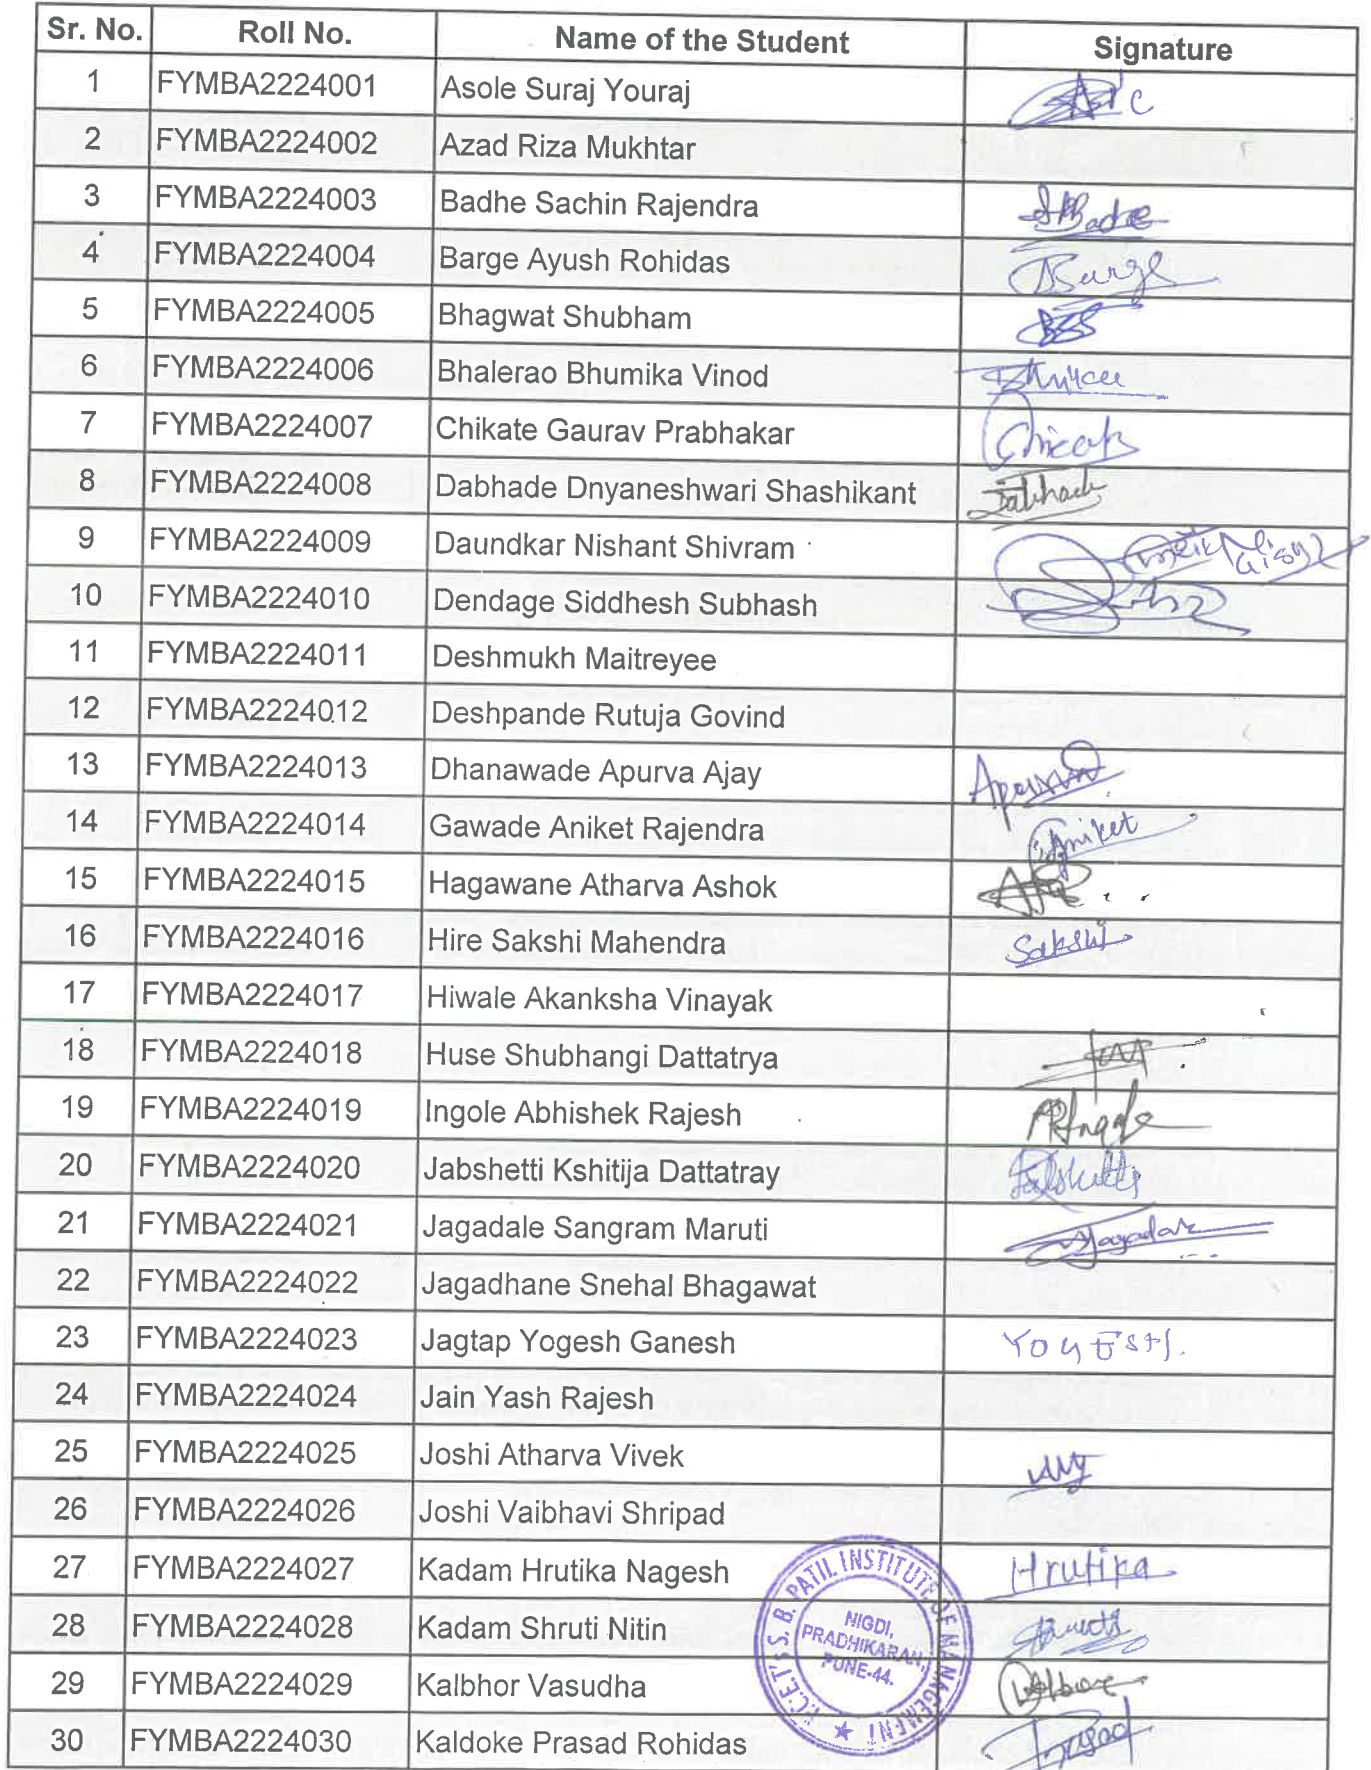 Sr. No. Roll No. Name of the Student Signature
1 FYMBA2224001 Asole Suraj Youraj
2 FYMBA2224002 Azad Riza Mukhtar
3 FYMBA2224003 Badhe Sachin Rajendra
4 FYMBA2224004 Barge Ayush Rohidas
5 FYMBA2224005 Bhagwat Shubham
6 FYMBA2224006 Bhalerao Bhumika Vinod
7 FYMBA2224007 Chikate Gaurav Prabhakar
8 FYMBA2224008 Dabhade Dnyaneshwari Shashikant
9 FYMBA2224009 Daundkar Nishant Shivram
10 FYMBA2224010 Dendage Siddhesh Subhash
11 FYMBA2224011 Deshmukh Maitreyee
12 FYMBA2224012 Deshpande Rutuja Govind
13 FYMBA2224013 Dhanawade Apurva Ajay
14 FYMBA2224014 Gawade Aniket Rajendra Aniket
15 FYMBA2224015 Hagawane Atharva Ashok
16 FYMBA2224016 Hire Sakshi Mahendra Sakshi
17 FYMBA2224017 Hiwale Akanksha Vinayak
18 FYMBA2224018 Huse Shubhangi Dattatrya
19 FYMBA2224019 Ingole Abhishek Rajesh
20 FYMBA2224020 Jabshetti Kshitija Dattatray
21 FYMBA2224021 Jagadale Sangram Maruti
22 FYMBA2224022 Jagadhane Snehal Bhagawat
23 FYMBA2224023 Jagtap Yogesh Ganesh YOGESH.
24 FYMBA2224024 Jain Yash Rajesh
25 FYMBA2224025 Joshi Atharva Vivek
26 FYMBA2224026 Joshi Vaibhavi Shripad
27 FYMBA2224027 Kadam Hrutika Nagesh Hrutika
28 FYMBA2224028 Kadam Shruti Nitin
29 FYMBA2224029 Kalbhor Vasudha
30 FYMBA2224030 Kaldoke Prasad Rohidas
P.C.E.T's S. B. PATIL INSTITUTE OF MANAGEMENT
NIGDI,
PRADHIKARAN,
PUNE-44.